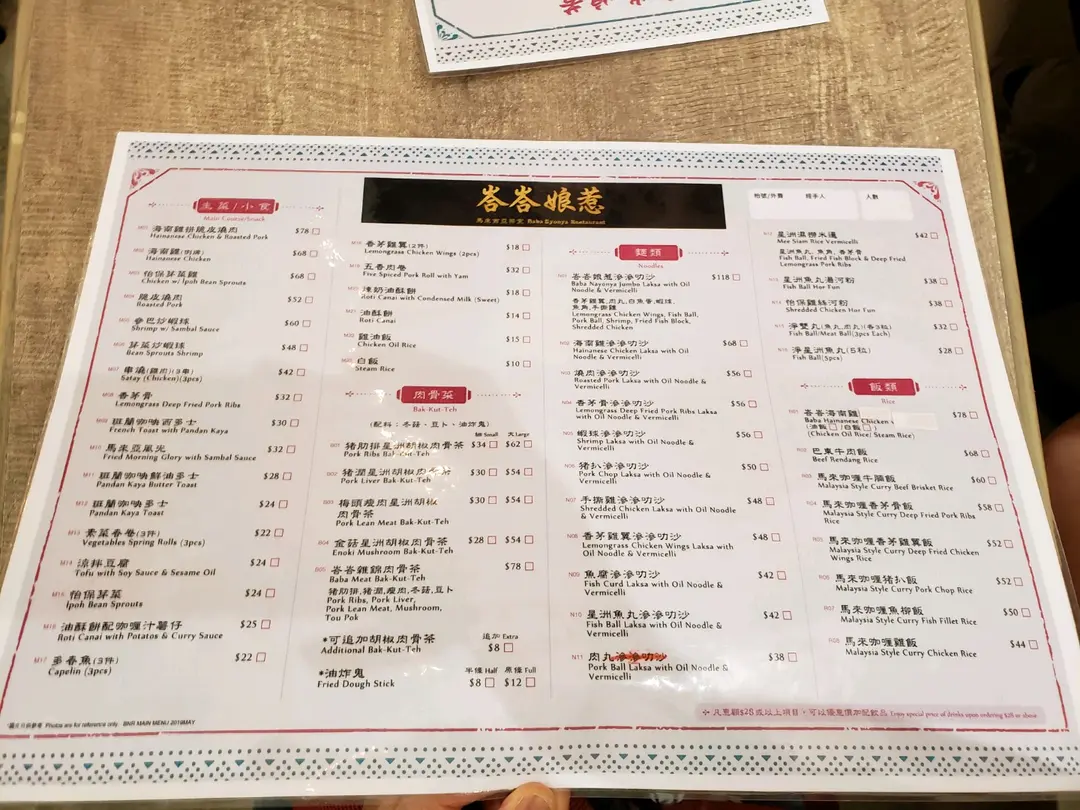 峇峇娘惹
馬來西亞餐室 Baba Nyonya Restaurant
枱號/外賣
經手人
人數
主菜/小食
Main Course/Snack
M01 海南雞拼脆皮燒肉 $78
Hainanese Chicken & Roasted Pork
M02 海南雞(例牌) $68
Hainanese Chicken
M03 怡保芽菜雞 $68
Chicken w/ Ipoh Bean Sprouts
M04 脆皮燒肉 $52
Roasted Pork
M05 參巴炒蝦球 $60
Shrimp w/ Sambal Sauce
M06 芽菜炒蝦球 $48
Bean Sprouts Shrimp
M07 串燒(雞肉)(3串) $42
Satay (Chicken)(3pcs)
M08 香茅骨 $32
Lemongrass Deep Fried Pork Ribs
M09 斑蘭咖吔西多士 $30
French Toast with Pandan Kaya
M10 馬來亞風光 $32
Fried Morning Glory with Sambal Sauce
M11 斑蘭咖吔鮮油多士 $28
Pandan Kaya Butter Toast
M12 斑蘭咖吔多士 $24
Pandan Kaya Toast
M13 素菜春卷(3件) $22
Vegetables Spring Rolls (3pcs)
M14 涼拌豆腐 $24
Tofu with Soy Sauce & Sesame Oil
怡保芽菜 $24
Ipoh Bean Sprouts
油酥餅配咖喱汁薯仔 $25
Roti Canai with Potatos & Curry Sauce
M17 多春魚(3件) $22
Capelin (3pcs)
香茅雞翼(2件) $18
Lemongrass Chicken Wings (2pcs)
五香肉卷 $32
Five Spiced Pork Roll with Yam
煉奶油酥餅 $18
Roti Canai with Condensed Milk (Sweet)
油酥餅 $14
Roti Canai
雞油飯 $15
Chicken Oil Rice
白飯 $10
Steam Rice
肉骨茶
Bak-Kut-Teh
(配料：冬菇、豆卜、油炸鬼)
細 Small 大 Large
B01 豬肋排星洲胡椒肉骨茶 $34 $62
Pork Ribs Bak-Kut-Teh
B02 豬潤星洲胡椒肉骨茶 $30 $54
Pork Liver Bak-Kut-Teh
B03 梅頭瘦肉星洲胡椒 $30 $54
肉骨茶
Pork Lean Meat Bak-Kut-Teh
B04 金菇星洲胡椒肉骨茶 $28 $54
Enoki Mushroom Bak-Kut-Teh
B05 峇峇雜錦肉骨茶 $78
Baba Meat Bak-Kut-Teh
豬肋排,豬潤,瘦肉,冬菇,豆卜
Pork Ribs, Pork Liver,
Pork Lean Meat, Mushroom,
Tou Pok
*可追加胡椒肉骨茶 追加 Extra
Additional Bak-Kut-Teh $8
*油炸鬼 半條 Half 原條 Full
Fried Dough Stick $8 $12
麵類
Noodles
N01 峇峇娘惹滲滲叻沙 $118
Baba Nayonya Jumbo Laksa with Oil
Noodle & Vermicelli
香茅雞翼,肉丸,白魚蛋,蝦球,
魚角,手撕雞
Lemongrass Chicken Wings, Fish Ball,
Pork Ball, Shrimp, Fried Fish Block,
Shredded Chicken
N02 海南雞滲滲叻沙 $68
Hainanese Chicken Laksa with Oil
Noodle & Vermicelli
N03 燒肉滲滲叻沙 $56
Roasted Pork Laksa with Oil Noodle &
Vermicelli
N04 香茅骨滲滲叻沙 $56
Lemongrass Deep Fried Pork Ribs Laksa
with Oil Noodle & Vermicelli
N05 蝦球滲滲叻沙 $56
Shrimp Laksa with Oil Noodle &
Vermicelli
N06 豬扒滲滲叻沙 $50
Pork Chop Laksa with Oil Noodle &
Vermicelli
N07 手撕雞滲滲叻沙 $48
Shredded Chicken Laksa with Oil Noodle
& Vermicelli
N08 香茅雞翼滲滲叻沙 $48
Lemongrass Chicken Wings Laksa with
Oil Noodle & Vermicelli
N09 魚腐滲滲叻沙 $42
Fish Curd Laksa with Oil Noodle &
Vermicelli
N10 星洲魚丸滲滲叻沙 $42
Fish Ball Laksa with Oil Noodle &
Vermicelli
N11 肉丸滲滲叻沙 $38
Pork Ball Laksa with Oil Noodle &
Vermicelli
星洲濕撈米暹 $42
Mee Siam Rice Vermicelli
星洲魚丸, 魚角, 香茅骨
Fish Ball, Fried Fish Block & Deep Fried
Lemongrass Pork Ribs
星洲魚丸湯河粉 $38
Fish Ball Hor Fun
怡保雞絲河粉 $38
Shredded Chicken Hor Fun
淨雙丸(魚丸,肉丸)(各3粒) $32
Fish Ball/Meat Ball(3pcs Each)
淨星洲魚丸(5粒) $28
Fish Ball(5pcs)
飯類
Rice
R01 峇峇海南雞 $78
Baba Hainanese Chicken
(油飯 白飯 )
(Chicken Oil Rice/ Steam Rice)
巴東牛肉飯 $68
Beef Rendang Rice
馬來咖喱牛腩飯 $60
Malaysia Style Curry Beef Brisket Rice
馬來咖喱香茅骨飯 $58
Malaysia Style Curry Deep Fried Pork Ribs
Rice
馬來咖喱香茅雞翼飯 $52
Malaysia Style Curry Deep Fried Chicken
Wings Rice
馬來咖喱豬扒飯 $52
Malaysia Style Curry Pork Chop Rice
R07 馬來咖喱魚柳飯 $50
Malaysia Style Curry Fish Fillet Rice
R08 馬來咖喱雞飯 $44
Malaysia Style Curry Chicken Rice
凡惠顧$28或以上項目，可以優惠價加配飲品 Enjoy special price of drinks upon ordering $28 or above
*圖片只供參考 Photos are for reference only. BNR MAIN MENU 2019MAY